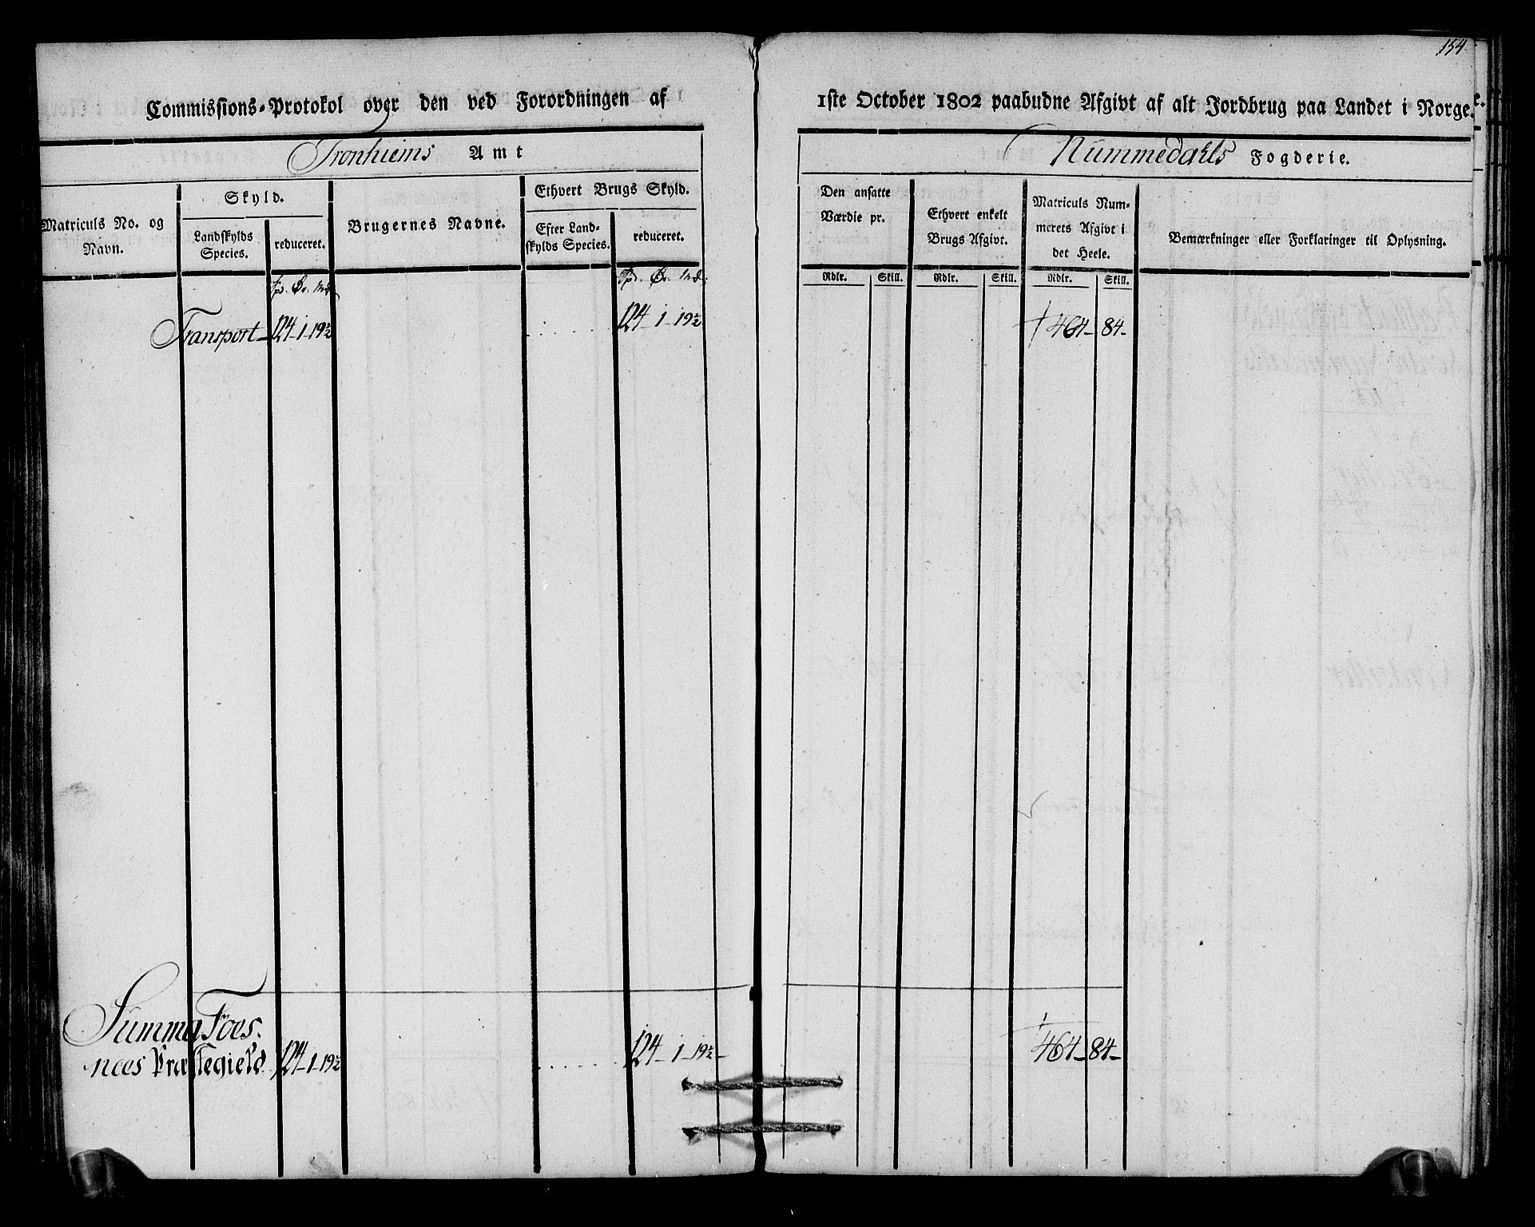 154
Commissions-Protokol over den ved Forordningen af 1ste October 1802 paabudne Afgivt af alt Jordbrug paa Landet i Norge.
Tronhiems Amt
Nummedahls Fogderie.
Matriculs No. og Navn.
Skyld.
Landskylds Species.
reduceret.
Brugernes Navne.
Ethvert Brugs Skyld.
Efter Landskylds Species.
reduceret.
Den ansatte Værdie pr.
Ethvert enkelt Brugs Afgivt.
Matriculs Nummerets Afgivt i det Heele.
Bemærkninger eller Forklaringer til Oplysning.
Rdlr. Skill. Rdlr. Skill. Rdlr. Skill.
Transport 124-1-19½ 124-1-19½ 464-84-
Summa Foes-
næs Præstegield 124-1-19½ 124-1-19½- 464-84-